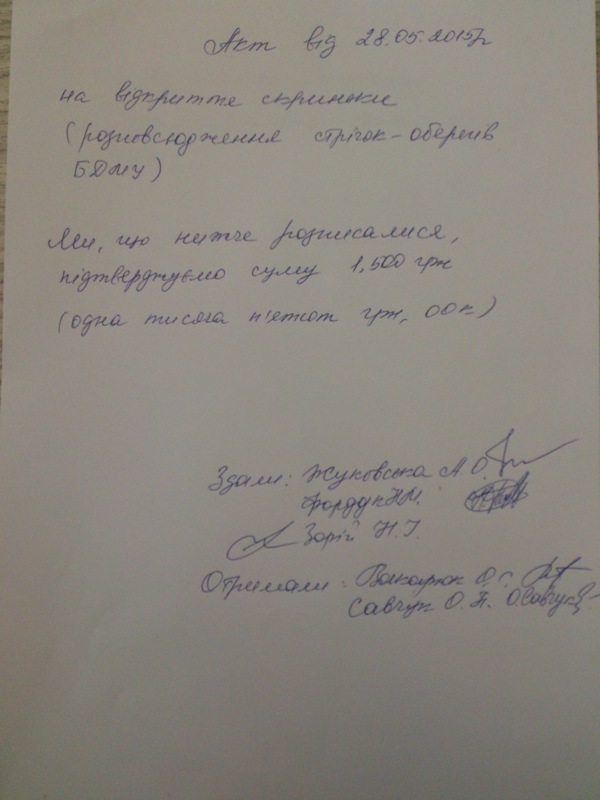 Акт від 28.05.2015р
на відкриття скриньки
(розповсюдження стрічок-оберегів
БДМУ)
Ми, що нижче розписалися,
підтверджуємо суму 1,500 грн
(одна тисяча п'ятсот грн, 00к)
Здали: Жуковська А О.
Н.М.
Зорій Н.І.
Отримали: О.Г.
Савчук О.П. О.Савчук